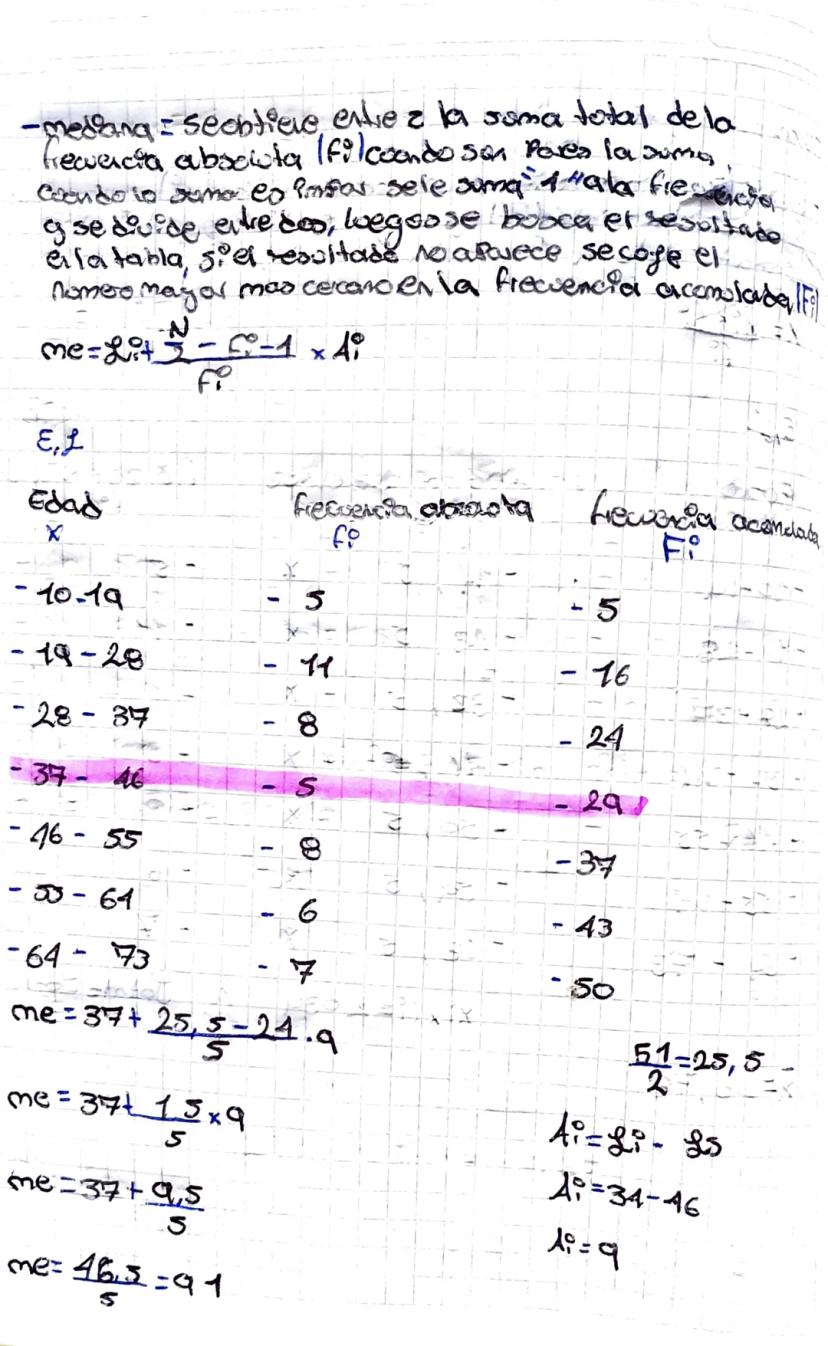 -mediana = seobtiene entre 2 la suma total dela
frecuencia absoluta |fi| cuando son Pares la suma,
cuando la suma es impar sele suma "1" ala frecuencia
y se divide entre dos, luegose busca el resultado
enla tabla, si el resultado no aparece se coge el
numero mayor mas cercano en la frecuencia acomulada |Fi|
me = Li + N/2 - Fi-1 / fi × Ai
E.1
Edad frecuencia absoluta frecuencia acomulada
x fi Fi
- 10-19 - 5 - 5
- 19 - 28 - 11 - 16
- 28 - 37 - 8 - 24
- 37 - 46 - 5 - 29
- 46 - 55 - 8 - 37
- 55 - 64 - 6 - 43
- 64 - 73 - 7 - 50
me = 37 + 25,5 - 24 / 5 . 9
51/2 = 25,5
me = 37 + 1 5 / 5 × 9
Ai = Li - Ls
me = 37 + 9,5 / 5
Ai = 37 - 46
Ai = 9
me = 46,5 / 5 = 9 1